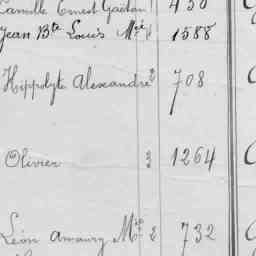 Camille Ernest Gaëtan 1 430
Jean Bte Louis Mie 1588
Hippolyte Alexandre 2 708
Olivier 3 1264
Léon Amaury Mie 2 732